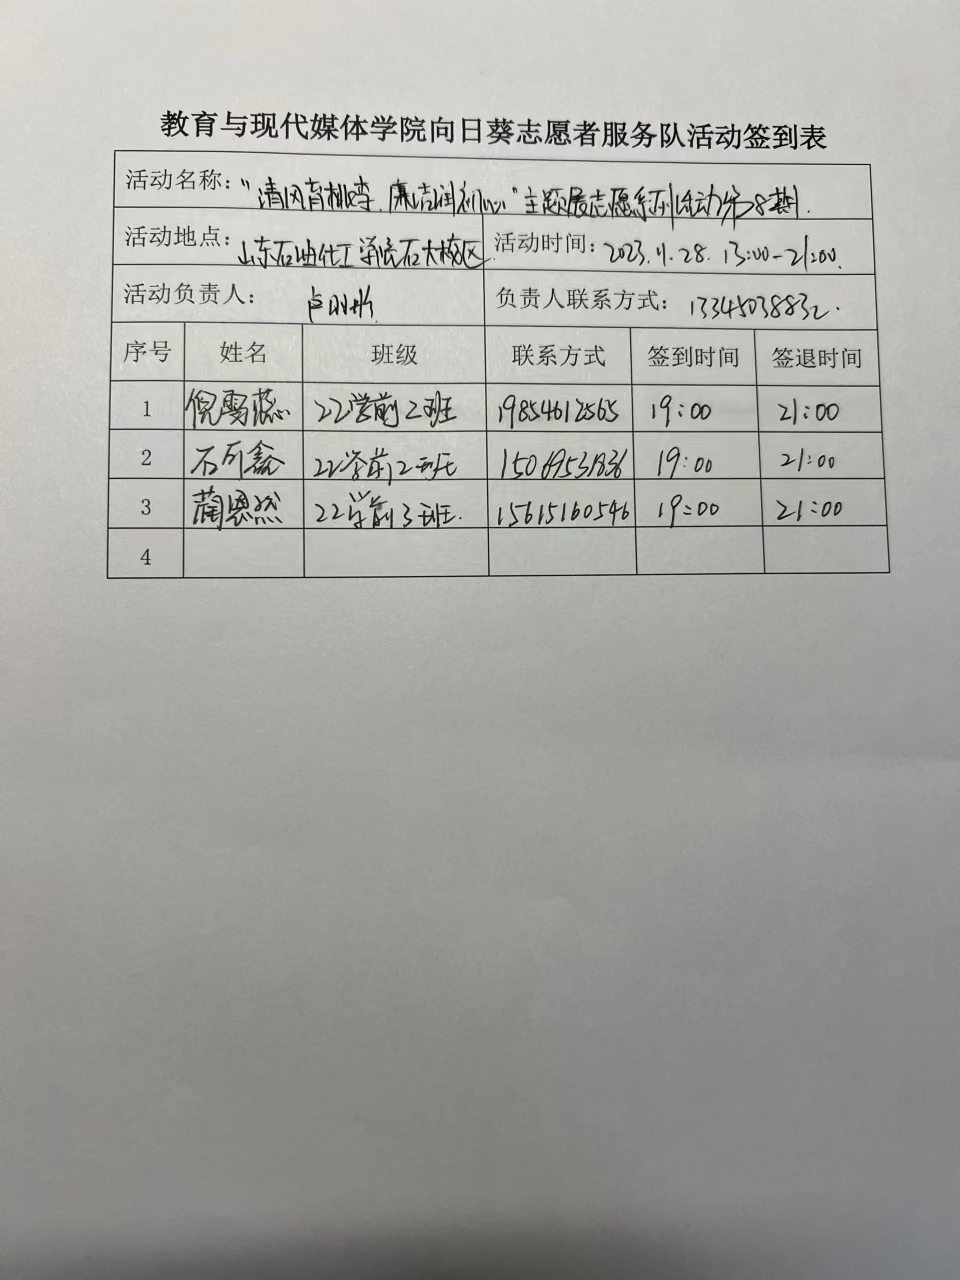 教育与现代媒体学院向日葵志愿者服务队活动签到表
活动名称："清风育桃李，廉洁润初心"主题展志愿系列活动第8期.
活动地点：山东石油化工学院石大校区 活动时间：2023.11.28. 13:00-21:00.
活动负责人： 负责人联系方式：13345038832.
序号 姓名 班级 联系方式 签到时间 签退时间
1 倪雪蕊 22学前2班 19854612565 19:00 21:00
2 石可鑫 22学前2班 15069531836 19:00 21:00
3 蔺恩然 22学前3班. 15615160546 19:00 21:00
4